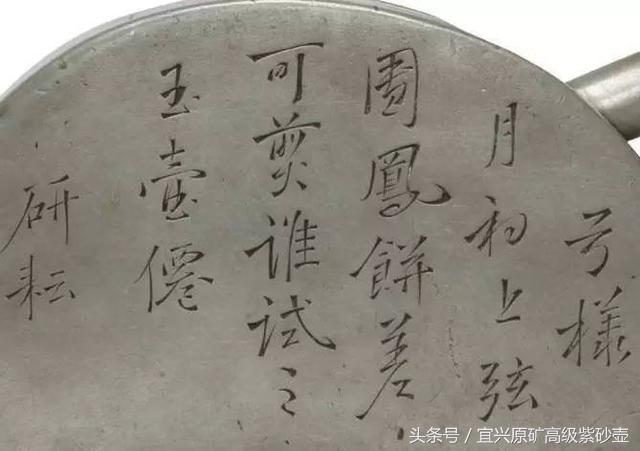 弓樣
月初上弦
團鳳餅差
可剪誰試之
玉壺僊
研耘
头条号/宜兴原矿高级紫砂壶